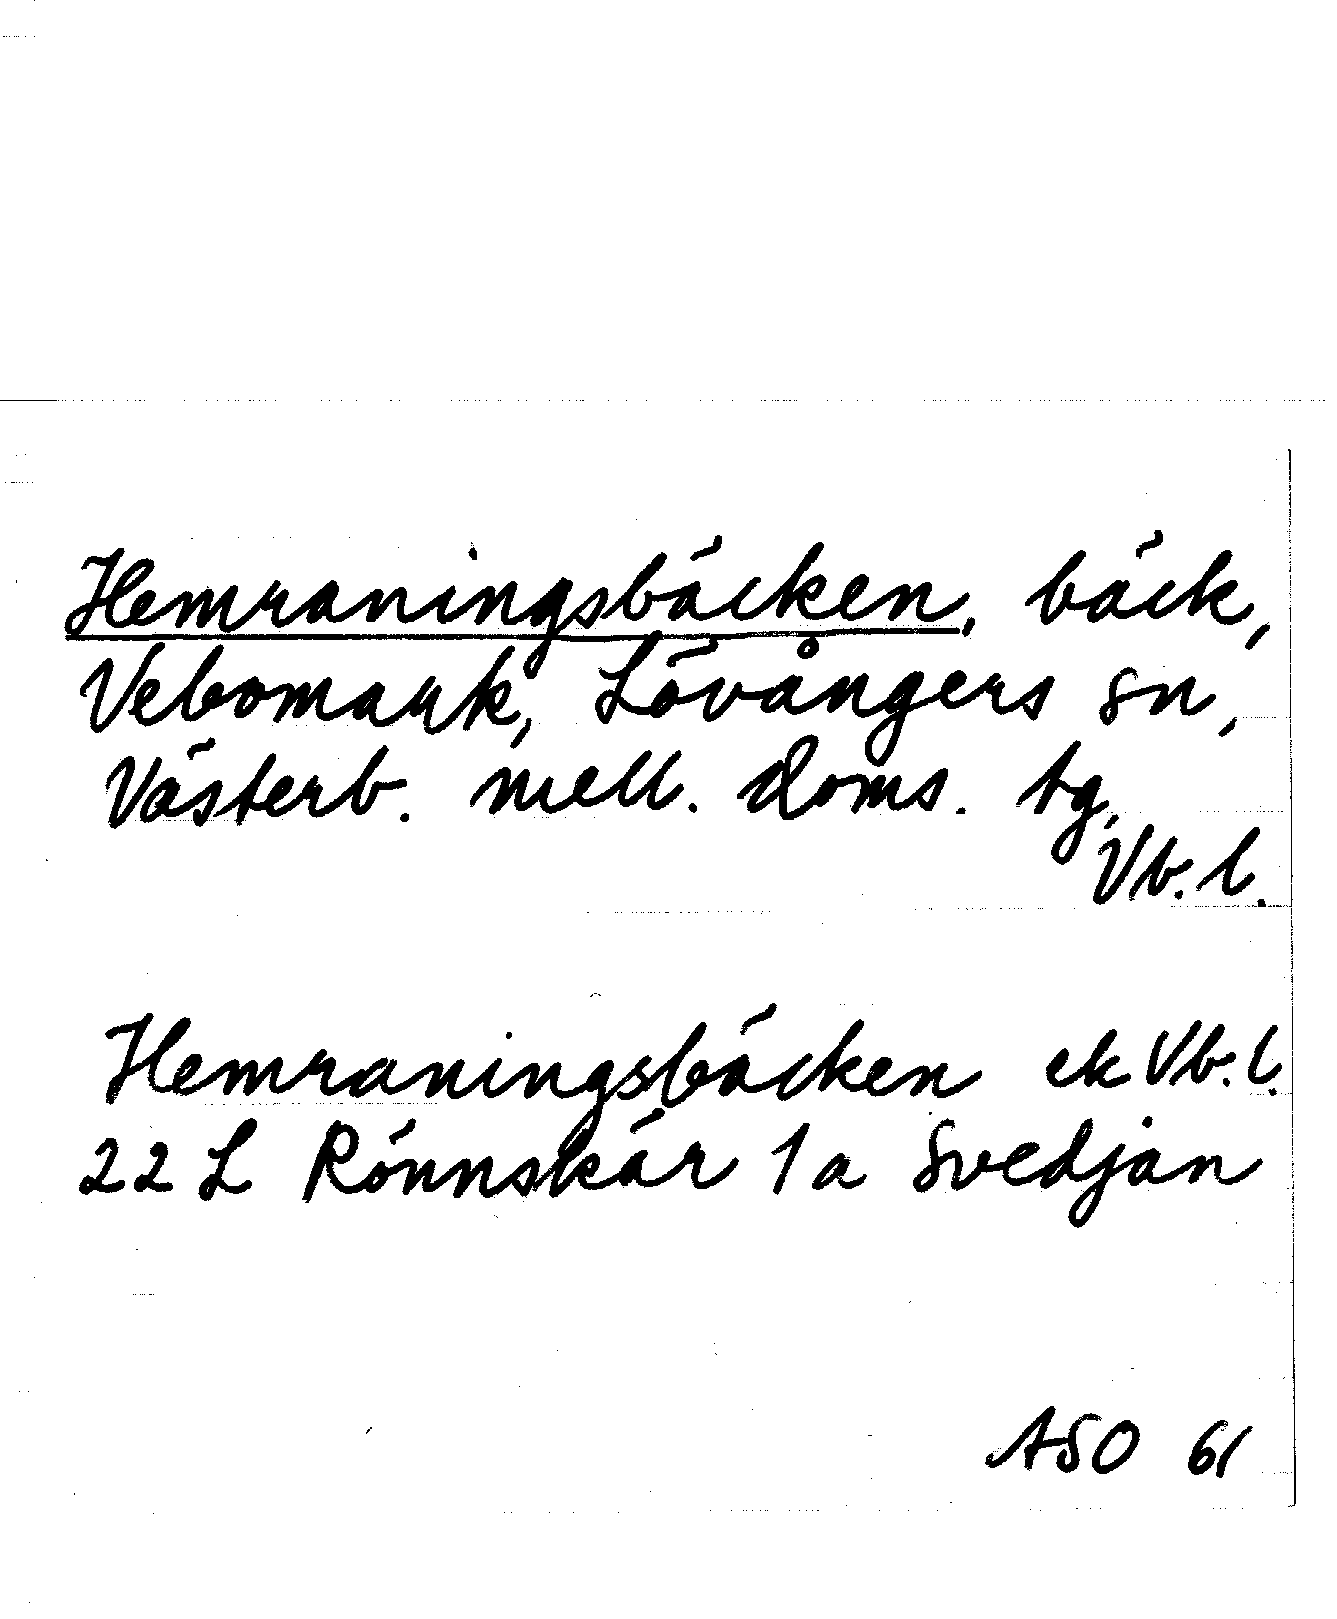 Hemraningsbäcken, bäck,
Vebomark, Lövångers sn,
Västerb. mell. doms. tg.
Vb. l.
Hemraningsbäcken ek Vb. l.
22 L Rönnskär 1 a Svedjan
ASO 61